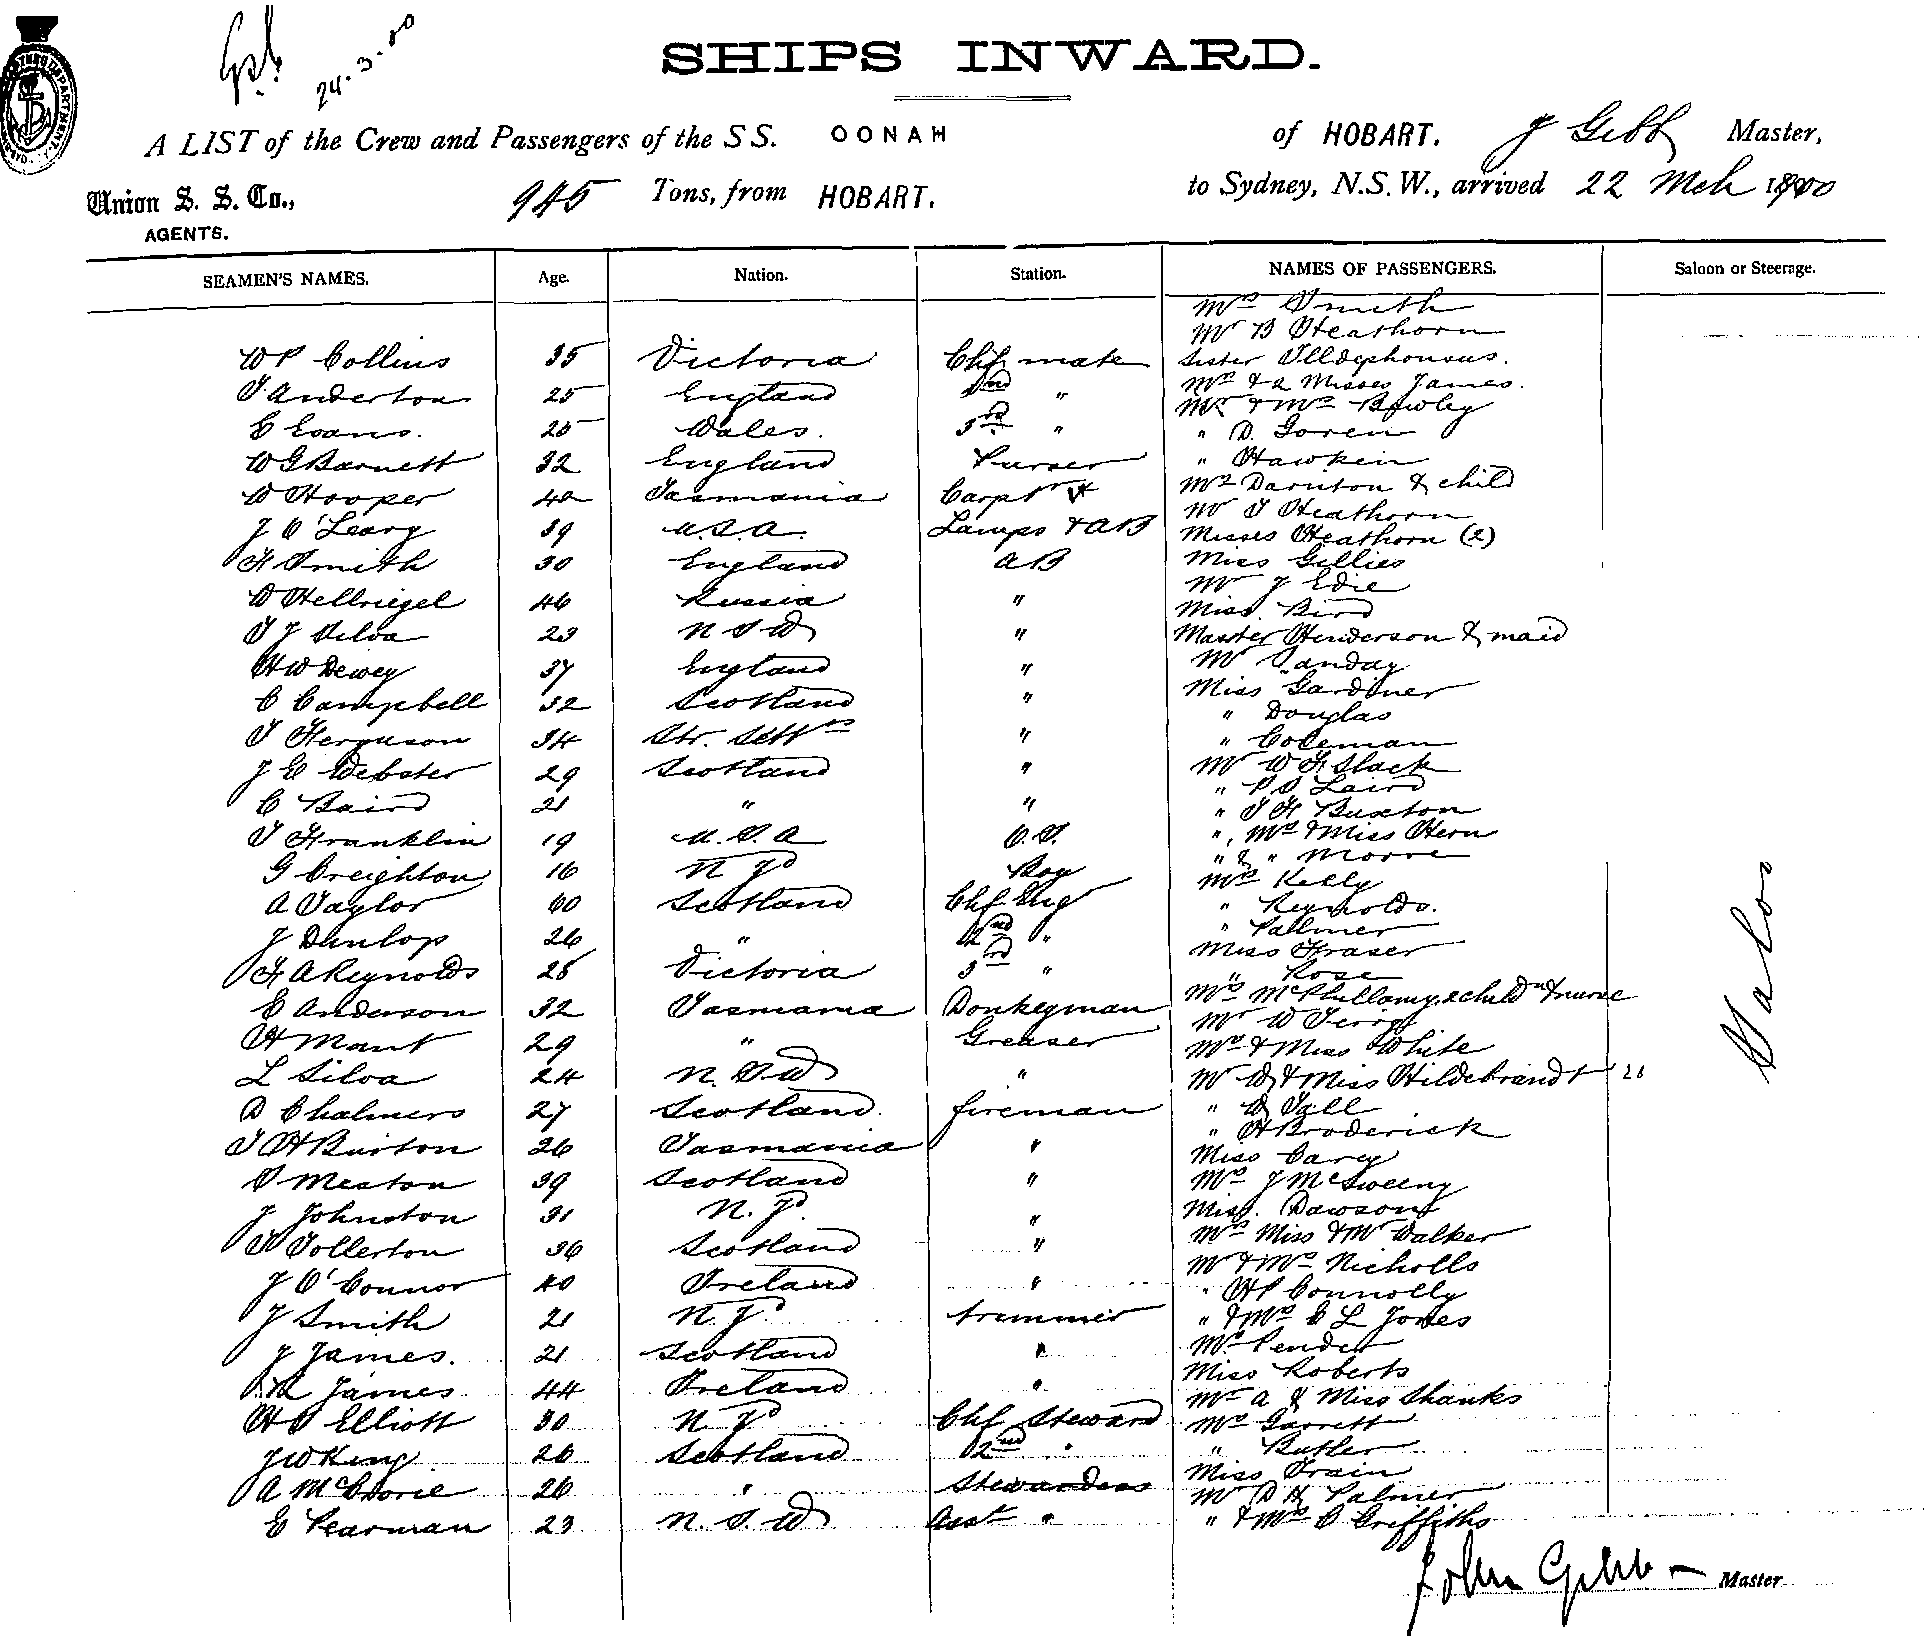 24.3.00
SHIPS INWARD.
A LIST of the Crew and Passengers of the SS. OONAH of HOBART. J Gibb Master,
Union S. S. Co., 945 Tons, from HOBART. to Sydney, N.S.W., arrived 22 Mch 1900
AGENTS.
SEAMEN'S NAMES. Age. Nation. Station. NAMES OF PASSENGERS. Saloon or Steerage.
Mrs Smith
Mr B Heathorn
W P Collins 35 Victoria Chf mate Sister Illdephonsus.
T Anderton 25 England 2nd " Mrs & 2 Misses James.
Mr & Mrs Bowley
E Evans. 25 Wales. 3rd " " D. Goren
W G Barnett 32 England Purser " Hawkein
W Hooper 40 Tasmania Carptr Mrs Darnton & child
Mr T Heathorn
J O'Leary 39 U.S.A. Lamps & AB Misses Heathorn (2)
F Smith 30 England AB Miss Gillies
Mr J Edie
W Hellriegel 46 Russia " Miss Bird
T J Silva 23 N S W " Master Henderson & maid
H W Dewey 37 England " Mr Sanday
Miss Gardiner
C Campbell 32 Scotland " " Douglas
T Ferguson 34 Str. Settlts " " Coleman
J E Webster 29 Scotland " Mr W F Slack
" P S Laird
C Baird 21 " " " T F Buxton
T Franklin 19 U.S.A O.S. ", Mrs & Miss Hern
" & " Moore
G Creighton 16 N Zd Boy Mrs Kelly
A Taylor 60 Scotland Chf Eng " Reynolds.
J Dunlop 26 " 2nd " " Palmer
Miss Fraser
F A Reynolds 25 Victoria 3rd " " Rose
E Anderson 32 Tasmania Donkeyman Mrs McPhillamy, 2 childn & nurse
Mr W Terry
H Mant 29 " Greaser Mrs & Miss White
L Silva 24 N.S.W " Mr W & Miss Hildebrandt
D Chalmers 27 Scotland. fireman " W Tall
" H Broderick
T H Burton 26 Tasmania " Miss Carey
S Meston 39 Scotland " Mrs J McSweeny
J Johnston 31 N. Zd. " Miss. Dawson
T Tollerton 36 Scotland " Mrs Miss & Mr Walker
Mr & Mrs Nicholls
J O'Connor 40 Ireland " " H P Connolly
J Smith 21 N. Zd trimmer " & Mrs E L Jones
J James. 21 Scotland " Mrs Pender
Miss Roberts
R James 44 Ireland " Mr A & Miss Shanks
H S Elliott 30 N Zd Chf Steward Mrs Garrett
J W King 26 Scotland 2nd " " Butler
A McCrorie 26 " Stewardess Miss Train
Mr D H Palmer
E Pearman 23 N.S.W Asst " " & Mrs C Griffiths
Saloon
John Gibb Master